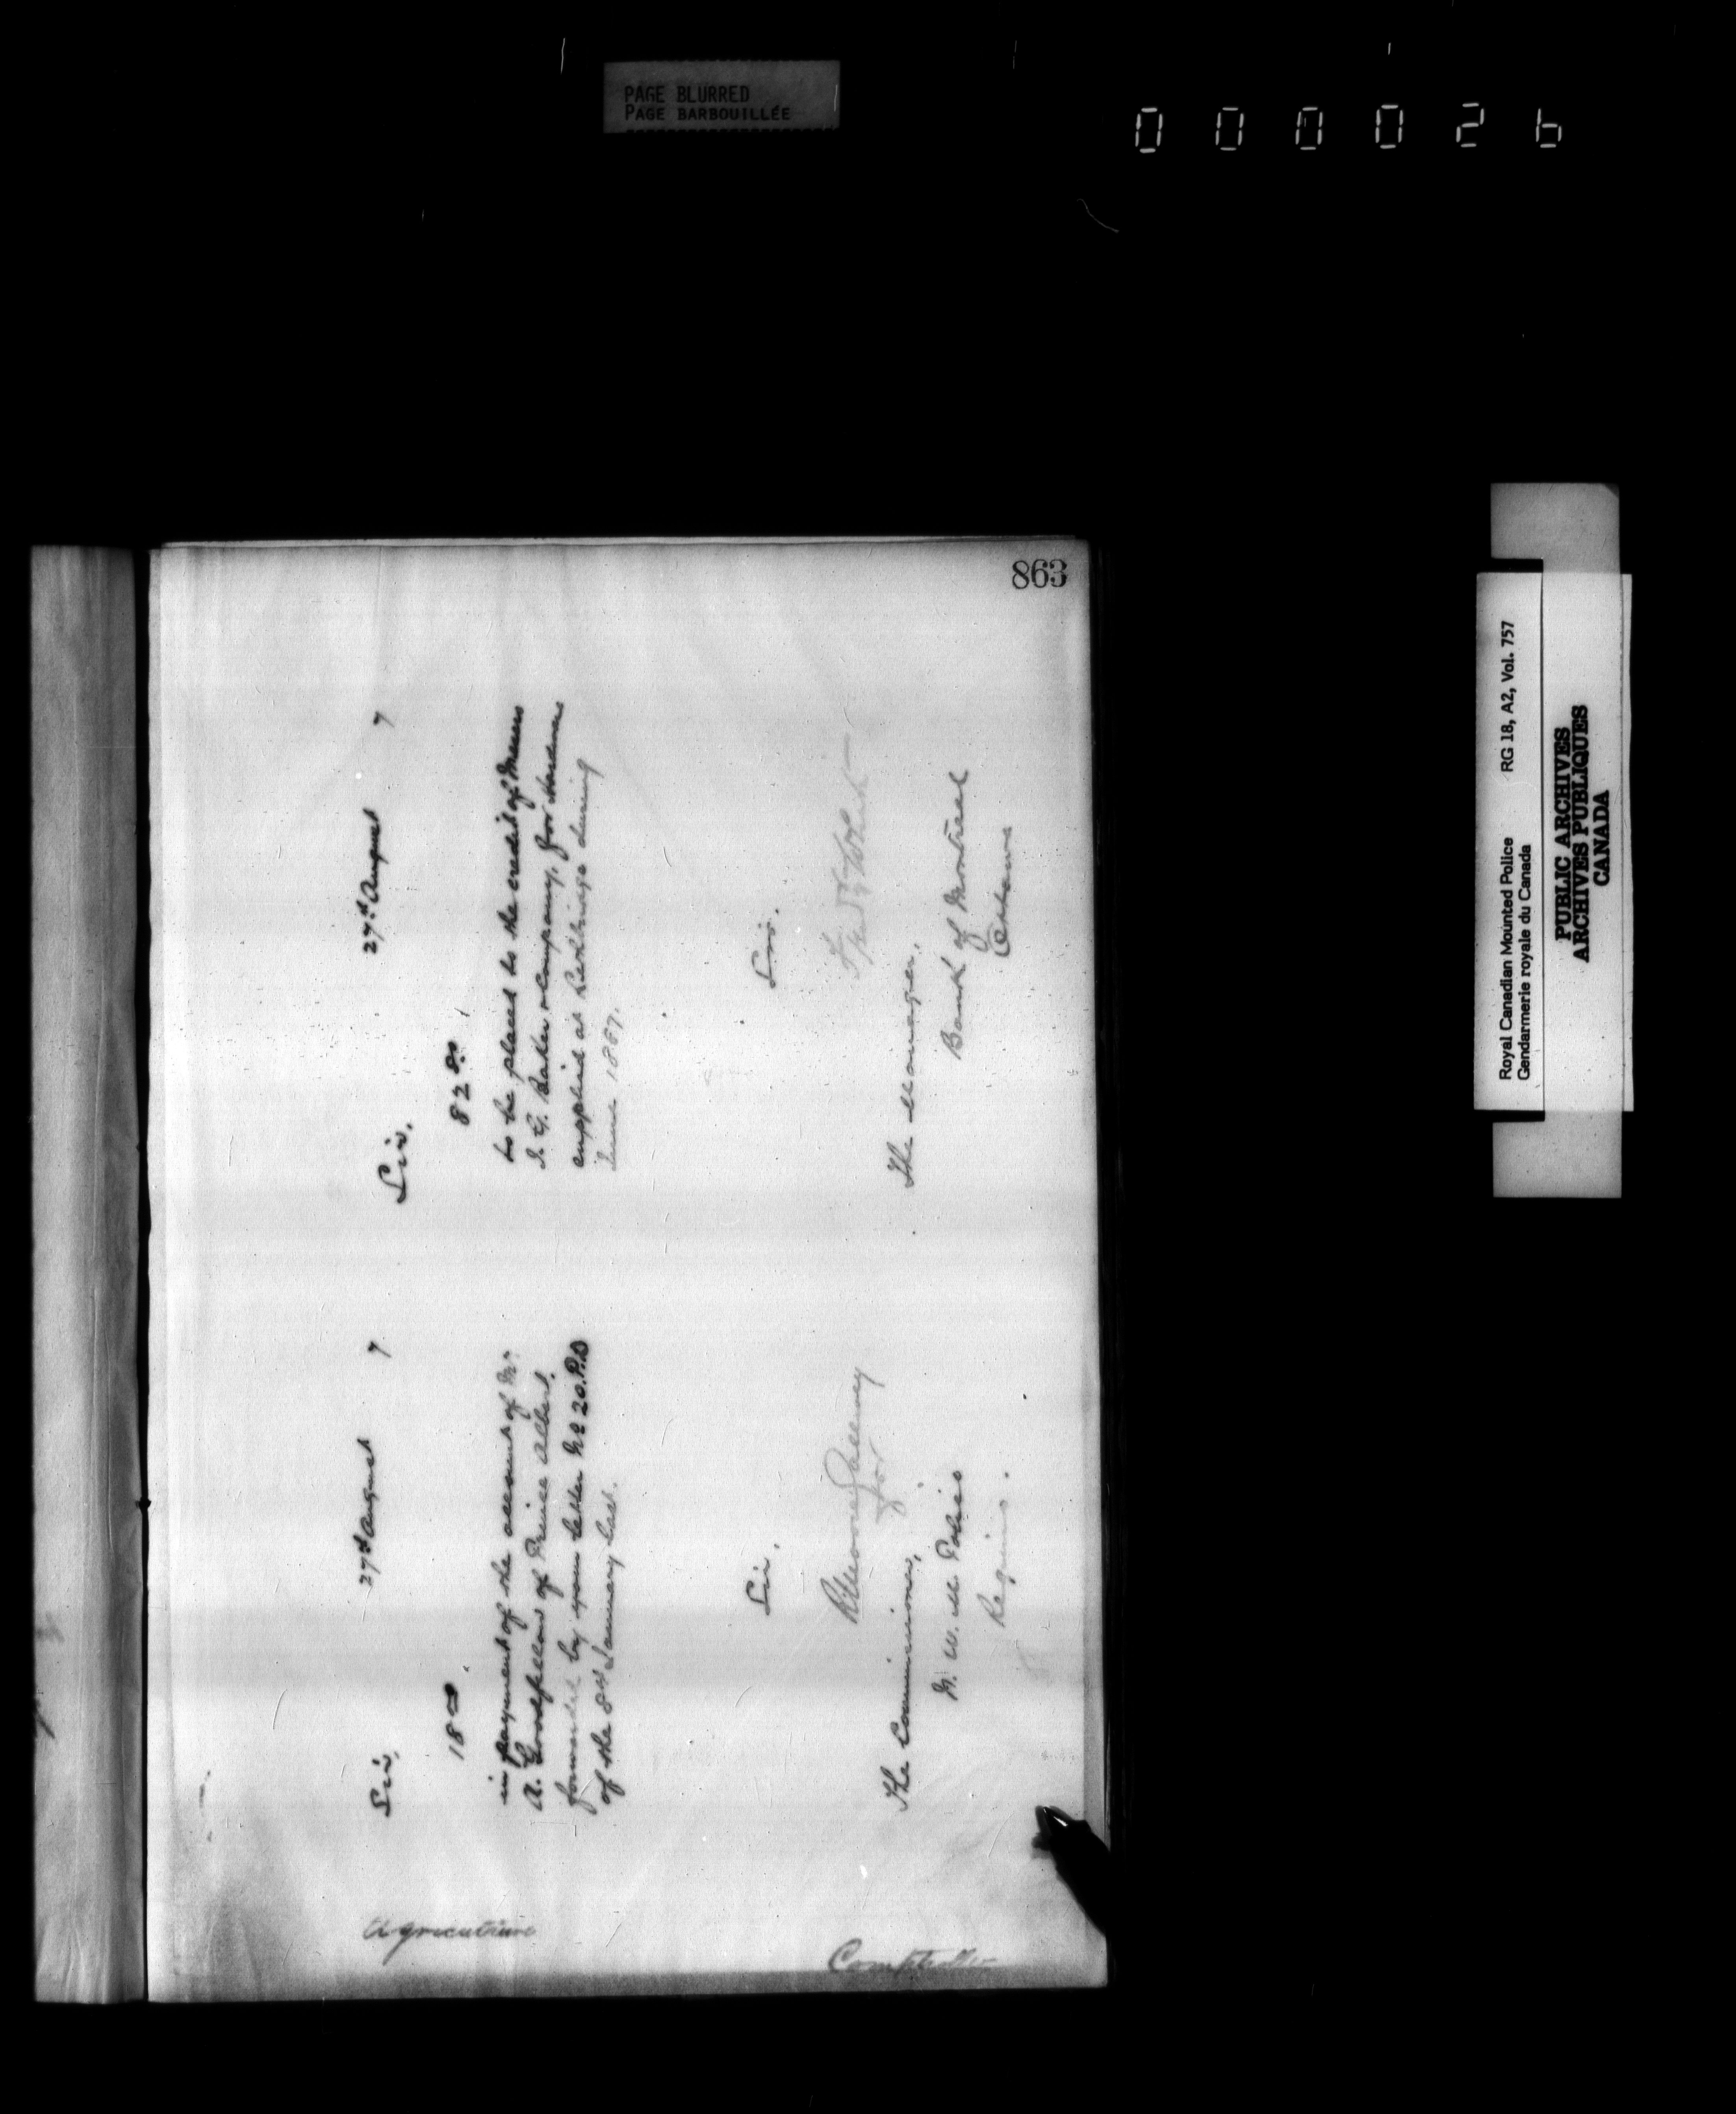 PAGE BLURRED
PAGE BARBOUILLÉE
863
27th August 7
Sir,
18 00
in payment of the account of Mr.
A. Goodfellow of Prince Albert,
forwarded by your letter No 20. P.D
of the 8th January last.
Sir,
for
The Commissioner,
N. W. M. Police
Regina.
27th August 7
Sir,
82 80
to be placed to the credit of Messrs
I. G. Baker & Company, for Hardware
supplied at Lethbridge during
June 1887.
Sir,
Fred White
The Manager,
Bank of Montreal
Ottawa
Agriculture
Comptroller
Royal Canadian Mounted Police RG 18, A2, Vol. 757
Gendarmerie royale du Canada
PUBLIC ARCHIVES
ARCHIVES PUBLIQUES
CANADA